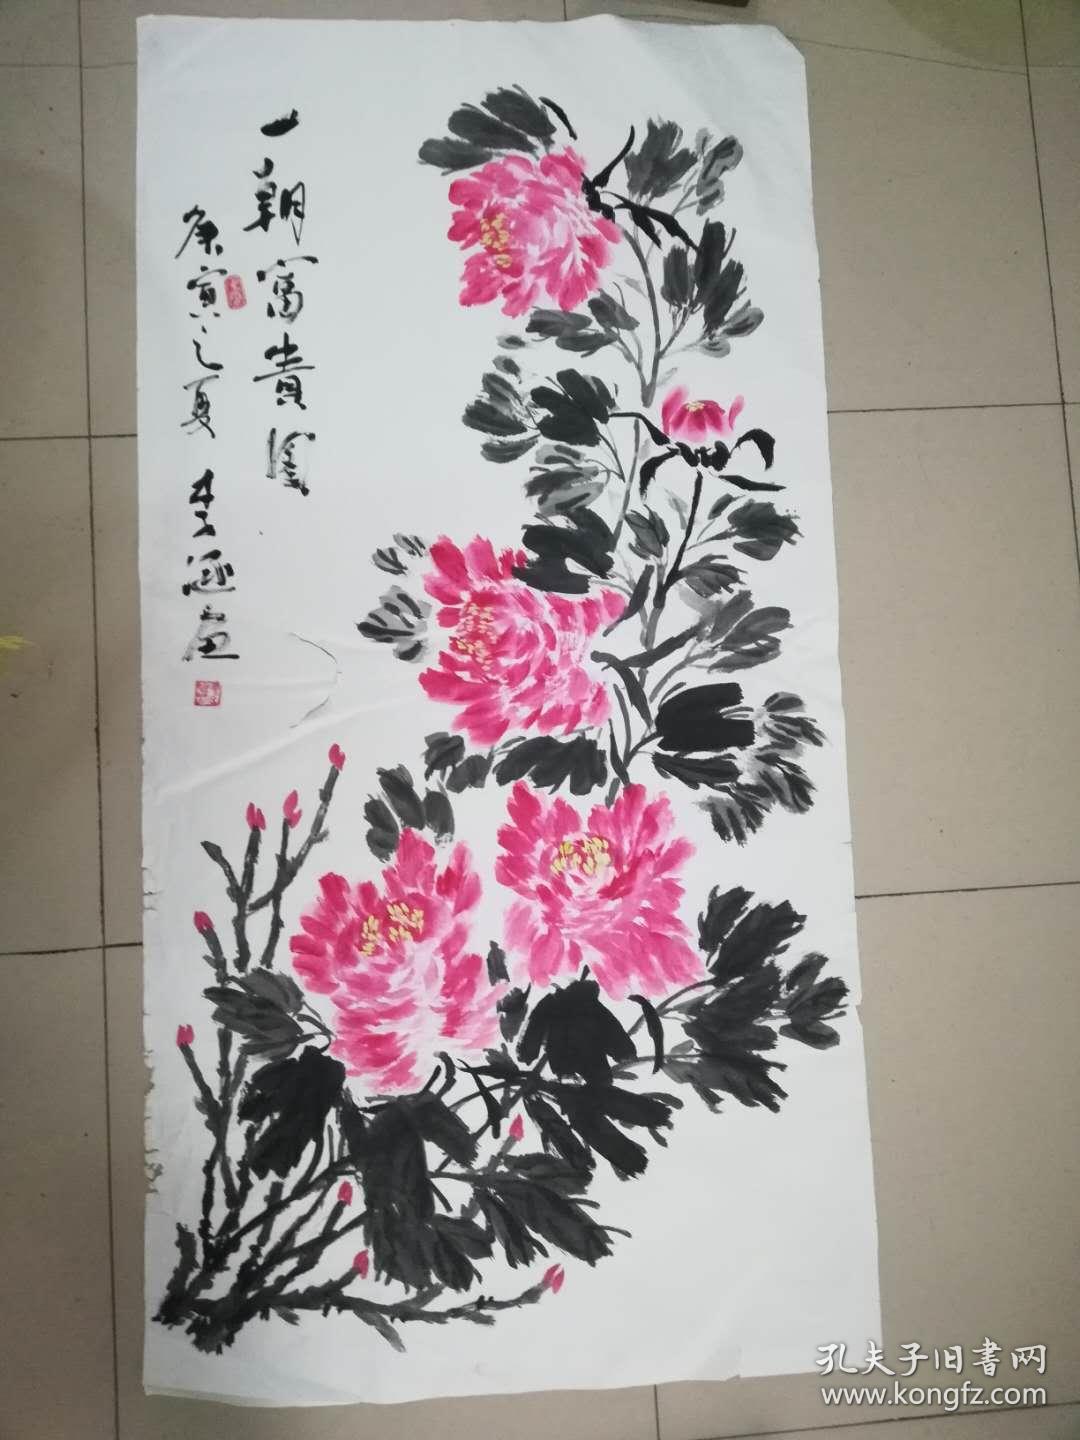 一朝富贵图
庚寅之夏 李涵画
孔夫子旧書网
www.kongfz.com